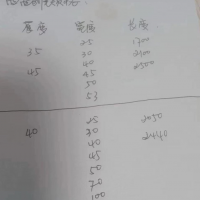 厚度 宽度 长度
25 1700
35 30 2100
40 2550
45 45
50
53
25 2050
40 30 2440
40
45
50
70
100